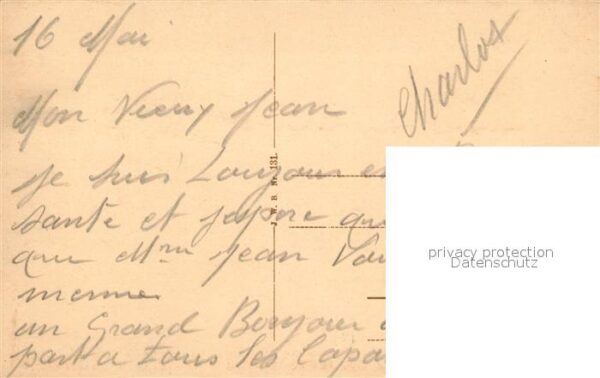 16 Mai
Charlos
Mon Vieux Jean
Je suis Toujours en
santé et jespere que
que Mme Jean Vou
meme
un Grand Bonjour
part a tous les Copa
J. W. B. Nr. 131.
privacy protection
Datenschutz